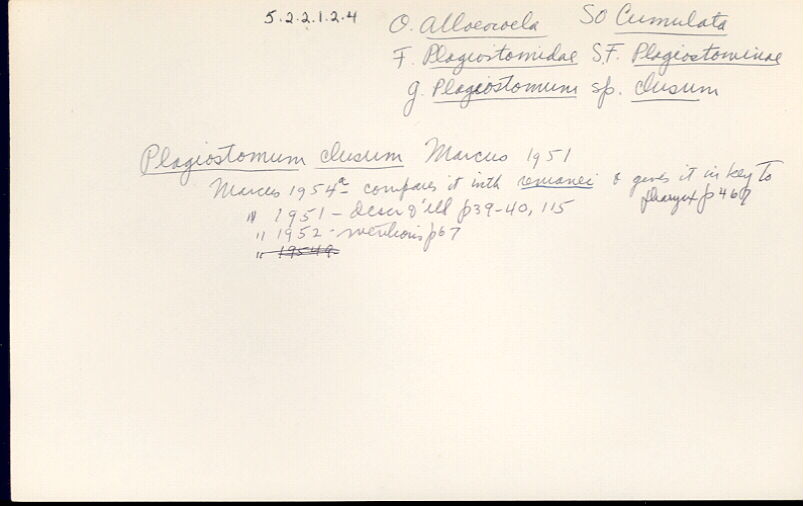 5.2.2.1.2.4 O. Alloeocoela SO Cumulata
F. Plagiostomidae S.F. Plagiostominae
g. Plagiostomum sp. clusum
Plagiostomum clusum Marcus 1951
Marcus 1954a - compares it with remanei & gives it in key to
pharynx p 46
" 1951 - descr & ill p39-40, 115
" 1952 - mentions p67
" 1954a